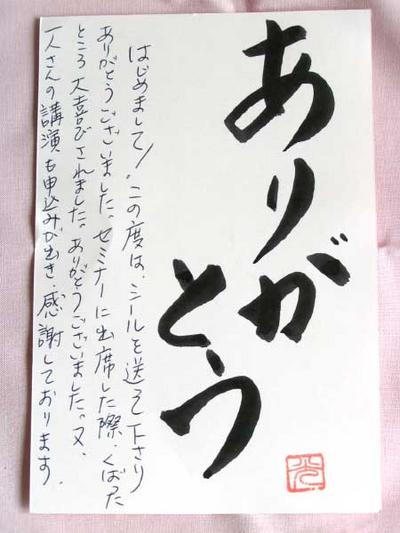 ありが
とう
はじめまして!この度は、シールを送って下さり
ありがとうございました。セミナーに出席した際、くばった
ところ大喜びされました。ありがとうございました。又、
一人さんの講演も申込みが出き、感謝しております。